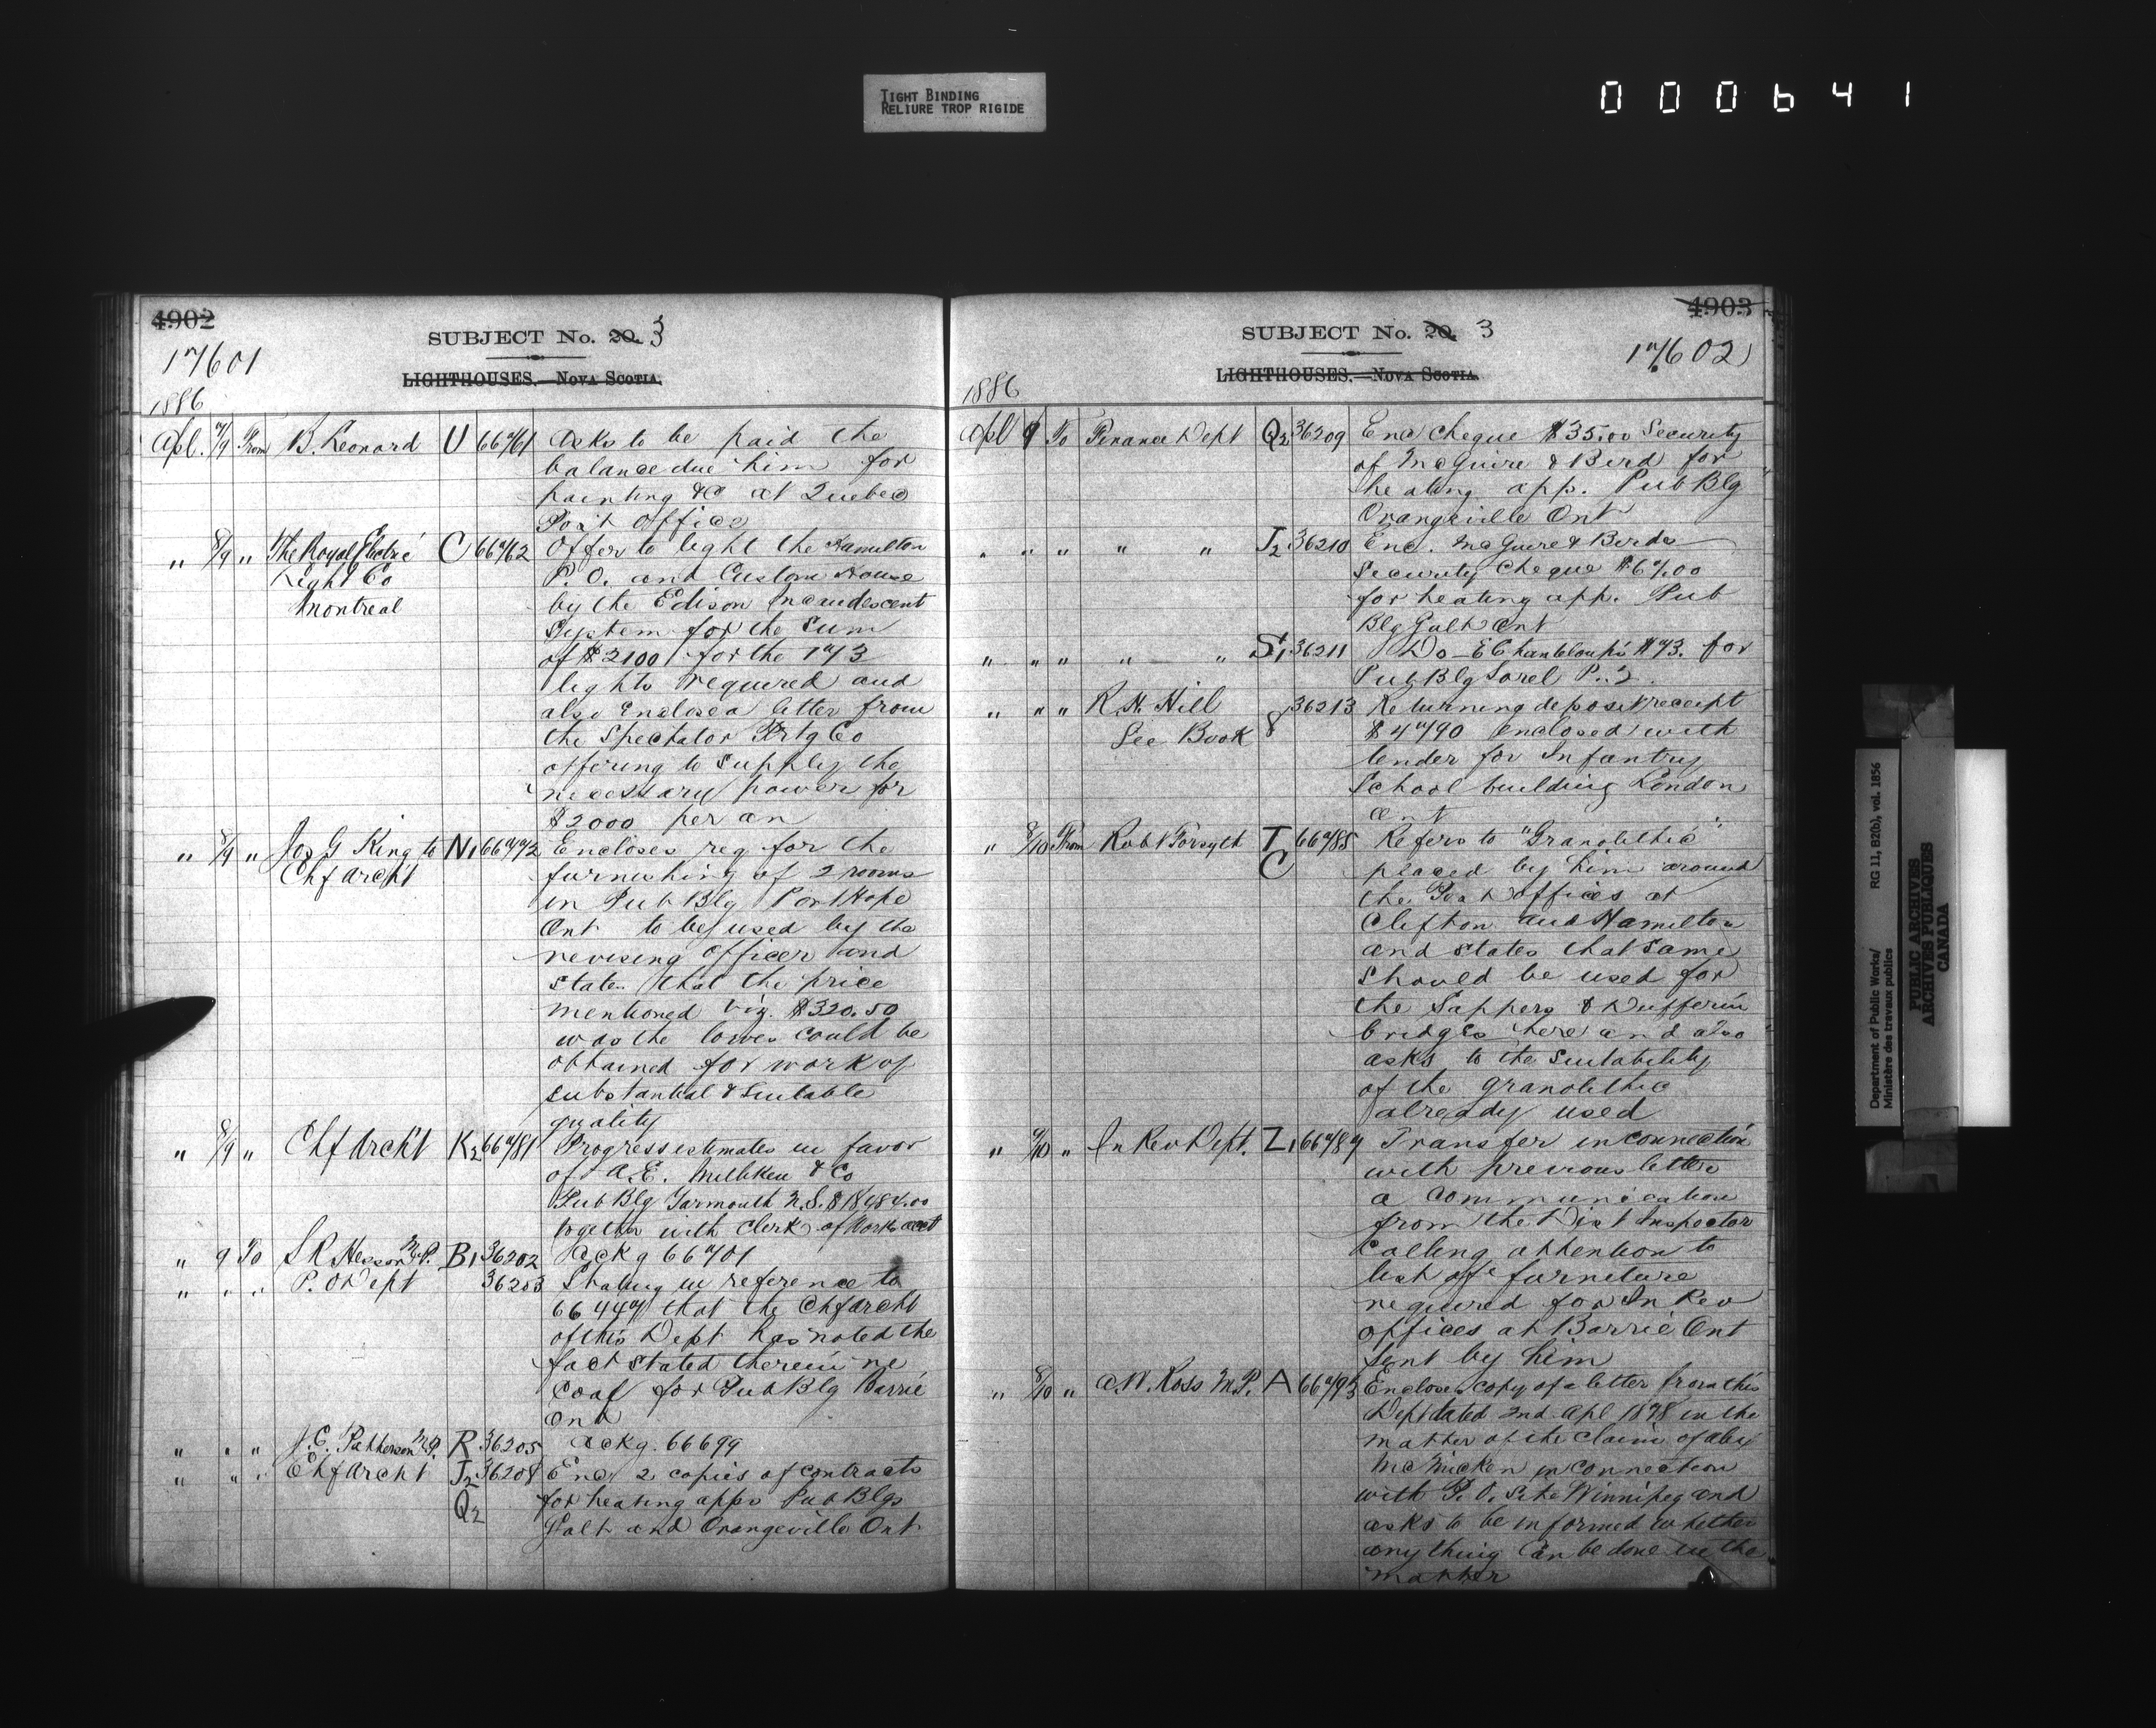 TIGHT BINDING
RELIURE TROP RIGIDE
000641
4902
SUBJECT No. 20. 3
17601
LIGHTHOUSES.—NOVA SCOTIA.
1886
Apl. 7/9 From B. Leonard U 66761 Asks to be paid the
balance due him for
painting &c at Quebec
Post Office
" 8/9 " The Royal Electric C 66762 Offer to light the Hamilton
Light Co P. O. and Custom House
Montreal by the Edison Incandescent
System for the sum
of $2100 for the 173
lights required and
also enclose a letter from
the Spectator Prtg Co
offering to supply the
necessary power for
$2000 per an
" 8/9 " Jos G King to N1 66772 Encloses req for the
Chf Archt furnishing of 2 rooms
in Pub Blg Port Hope
Ont to be used by the
revising officer and
states that the price
mentioned viz. $320.50
was the lowes could be
obtained for work of
substantial & suitable
quality
" 8/9 " Chf Archt K2 66781 Progress estimates in favor
of A. E. Milliken & Co
Pub Blg Yarmouth N.S.
together with Clerk of Works acct
" 9 To S R Hesson M.P. B1 36202 Ackg 66701
" " " P. O Dept 36203 Stating in reference to
66447 that the Chf Archt
of this Dept has noted the
fact stated therein re
Coal for Pub Blg Barrie
Ont
" " " J. C. Patterson M.P. R 36205 Ackg. 66699
" " " Chf Archt J2 36208 Enc 2 copies of contracts
Q2 for heating apps Pub Blgs
Galt and Orangeville Ont
4903
SUBJECT No. 20. 3
17602
LIGHTHOUSES.—NOVA SCOTIA.
1886
Apl 9 To Finance Dept Q2 36209 Enc cheque $35.00 Security
of McGuire & Bird for
heating app. Pub Blg
Orangeville Ont
" " " " " J2 36210 Enc. McGuire & Birds
Security Cheque $67.00
for heating app. Pub
Blg Galt Ont
" " " " " S1 36211 Do E Chanteloup's $73. for
Pub Blg Sorel P.Q.
" " " R. H. Hill 8 36213 Returning deposit receipt
See Book $4790 enclosed with
tender for Infantry
School building London
Ont
" 8/10 From Robt Forsyth T 66785 Refers to "Granolithic"
C placed by him around
the Post offices at
Clifton and Hamilton
and states that same
should be used for
the Sappers & Dufferin
bridges here and also
asks to the suitability
of the granolithic
already used
" 9/10 " In Rev Dept. Z1 66789 Transfer in connection
with previous letter
a communication
from the Dist Inspector
calling attention to
list of furniture
required for In Rev
offices at Barrie Ont
sent by him
" 8/10 " A. W. Ross M.P. A 66793 Encloses copy of a letter from this
Dept dated 2nd Apl 1878 in the
matter of the claim of Alex
McMicken in connection
with P. O. site Winnipeg and
asks to be informed whether
anything can be done in the
matter
Department of Public Works/
Ministère des travaux publics
RG 11, B2(b), vol. 1856
PUBLIC ARCHIVES
ARCHIVES PUBLIQUES
CANADA